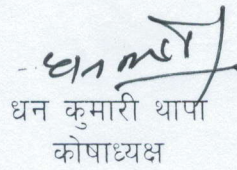 धन कुमारी थापा
कोषाध्यक्ष